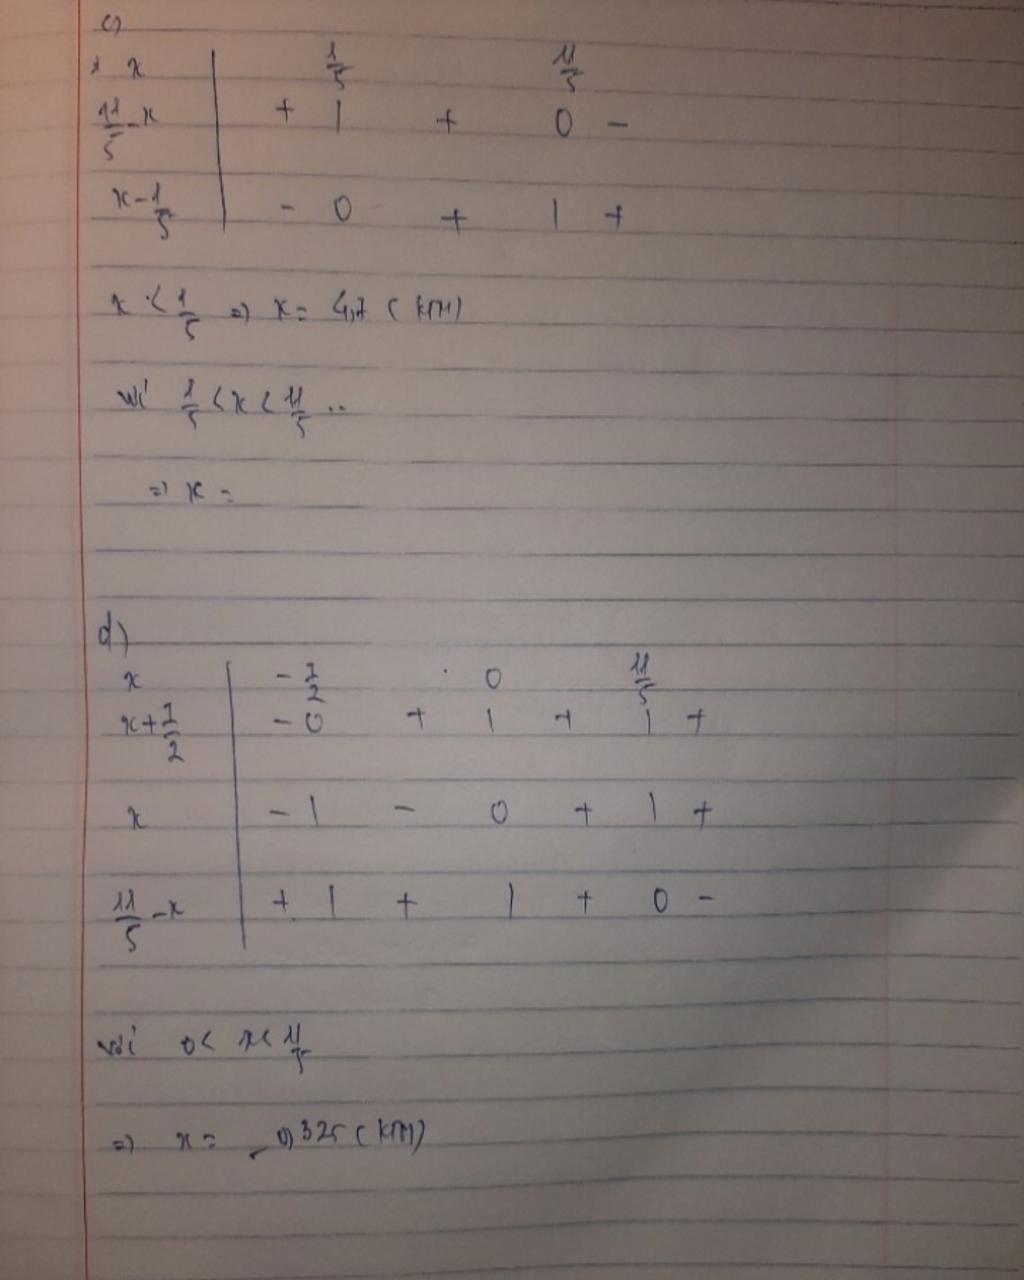 c)
x | 1/5 11/5
11/5 - x | + | + 0 -
x - 1/5 | - 0 + | +
x < 1/5 => x = 4,7 (KTM)
với 1/5 < x < 11/5 ..
=> x =
d)
x | - 7/2 0 11/5
x + 7/2 | - 0 + | + | +
x | - | - 0 + | +
11/5 - x | + | + | + 0 -
với 0 < x < 11/5
=> x = - 0,325 (KTM)